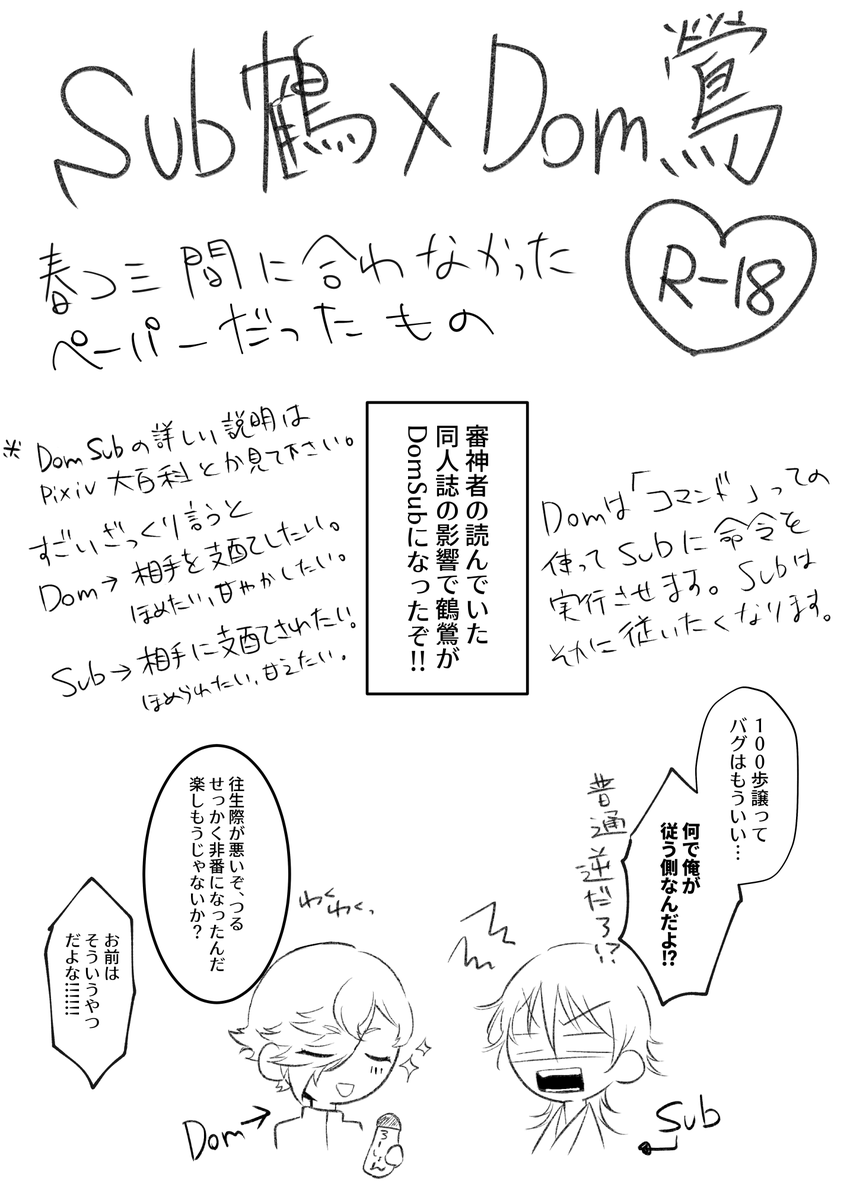 Sub鶴×Dom鶯
R-18
春コミ間に合わなかった
ペーパーだったもの
※DomSubの詳しい説明は
pixiv大百科とか見て下さい。
すごいざっくり言うと
Dom→相手を支配したい。
ほめたい,甘やかしたい。
Sub→相手に支配されたい。
ほめられたい,甘えたい。
審神者の読んでいた
同人誌の影響で鶴鶯が
DomSubになったぞ!!
Domは「コマンド」っての
使ってSubに命令を
実行させます。Subは
それに従いたくなります。
100歩譲って
バグはもういい…
何で俺が
従う側なんだよ!?
普通逆だろ!?
往生際が悪いぞ、つる
せっかく非番になったんだ
楽しもうじゃないか?
わくわくっ
お前は
そういうやつ
だよな!!!!!!
Dom→
ろーしょん
Sub